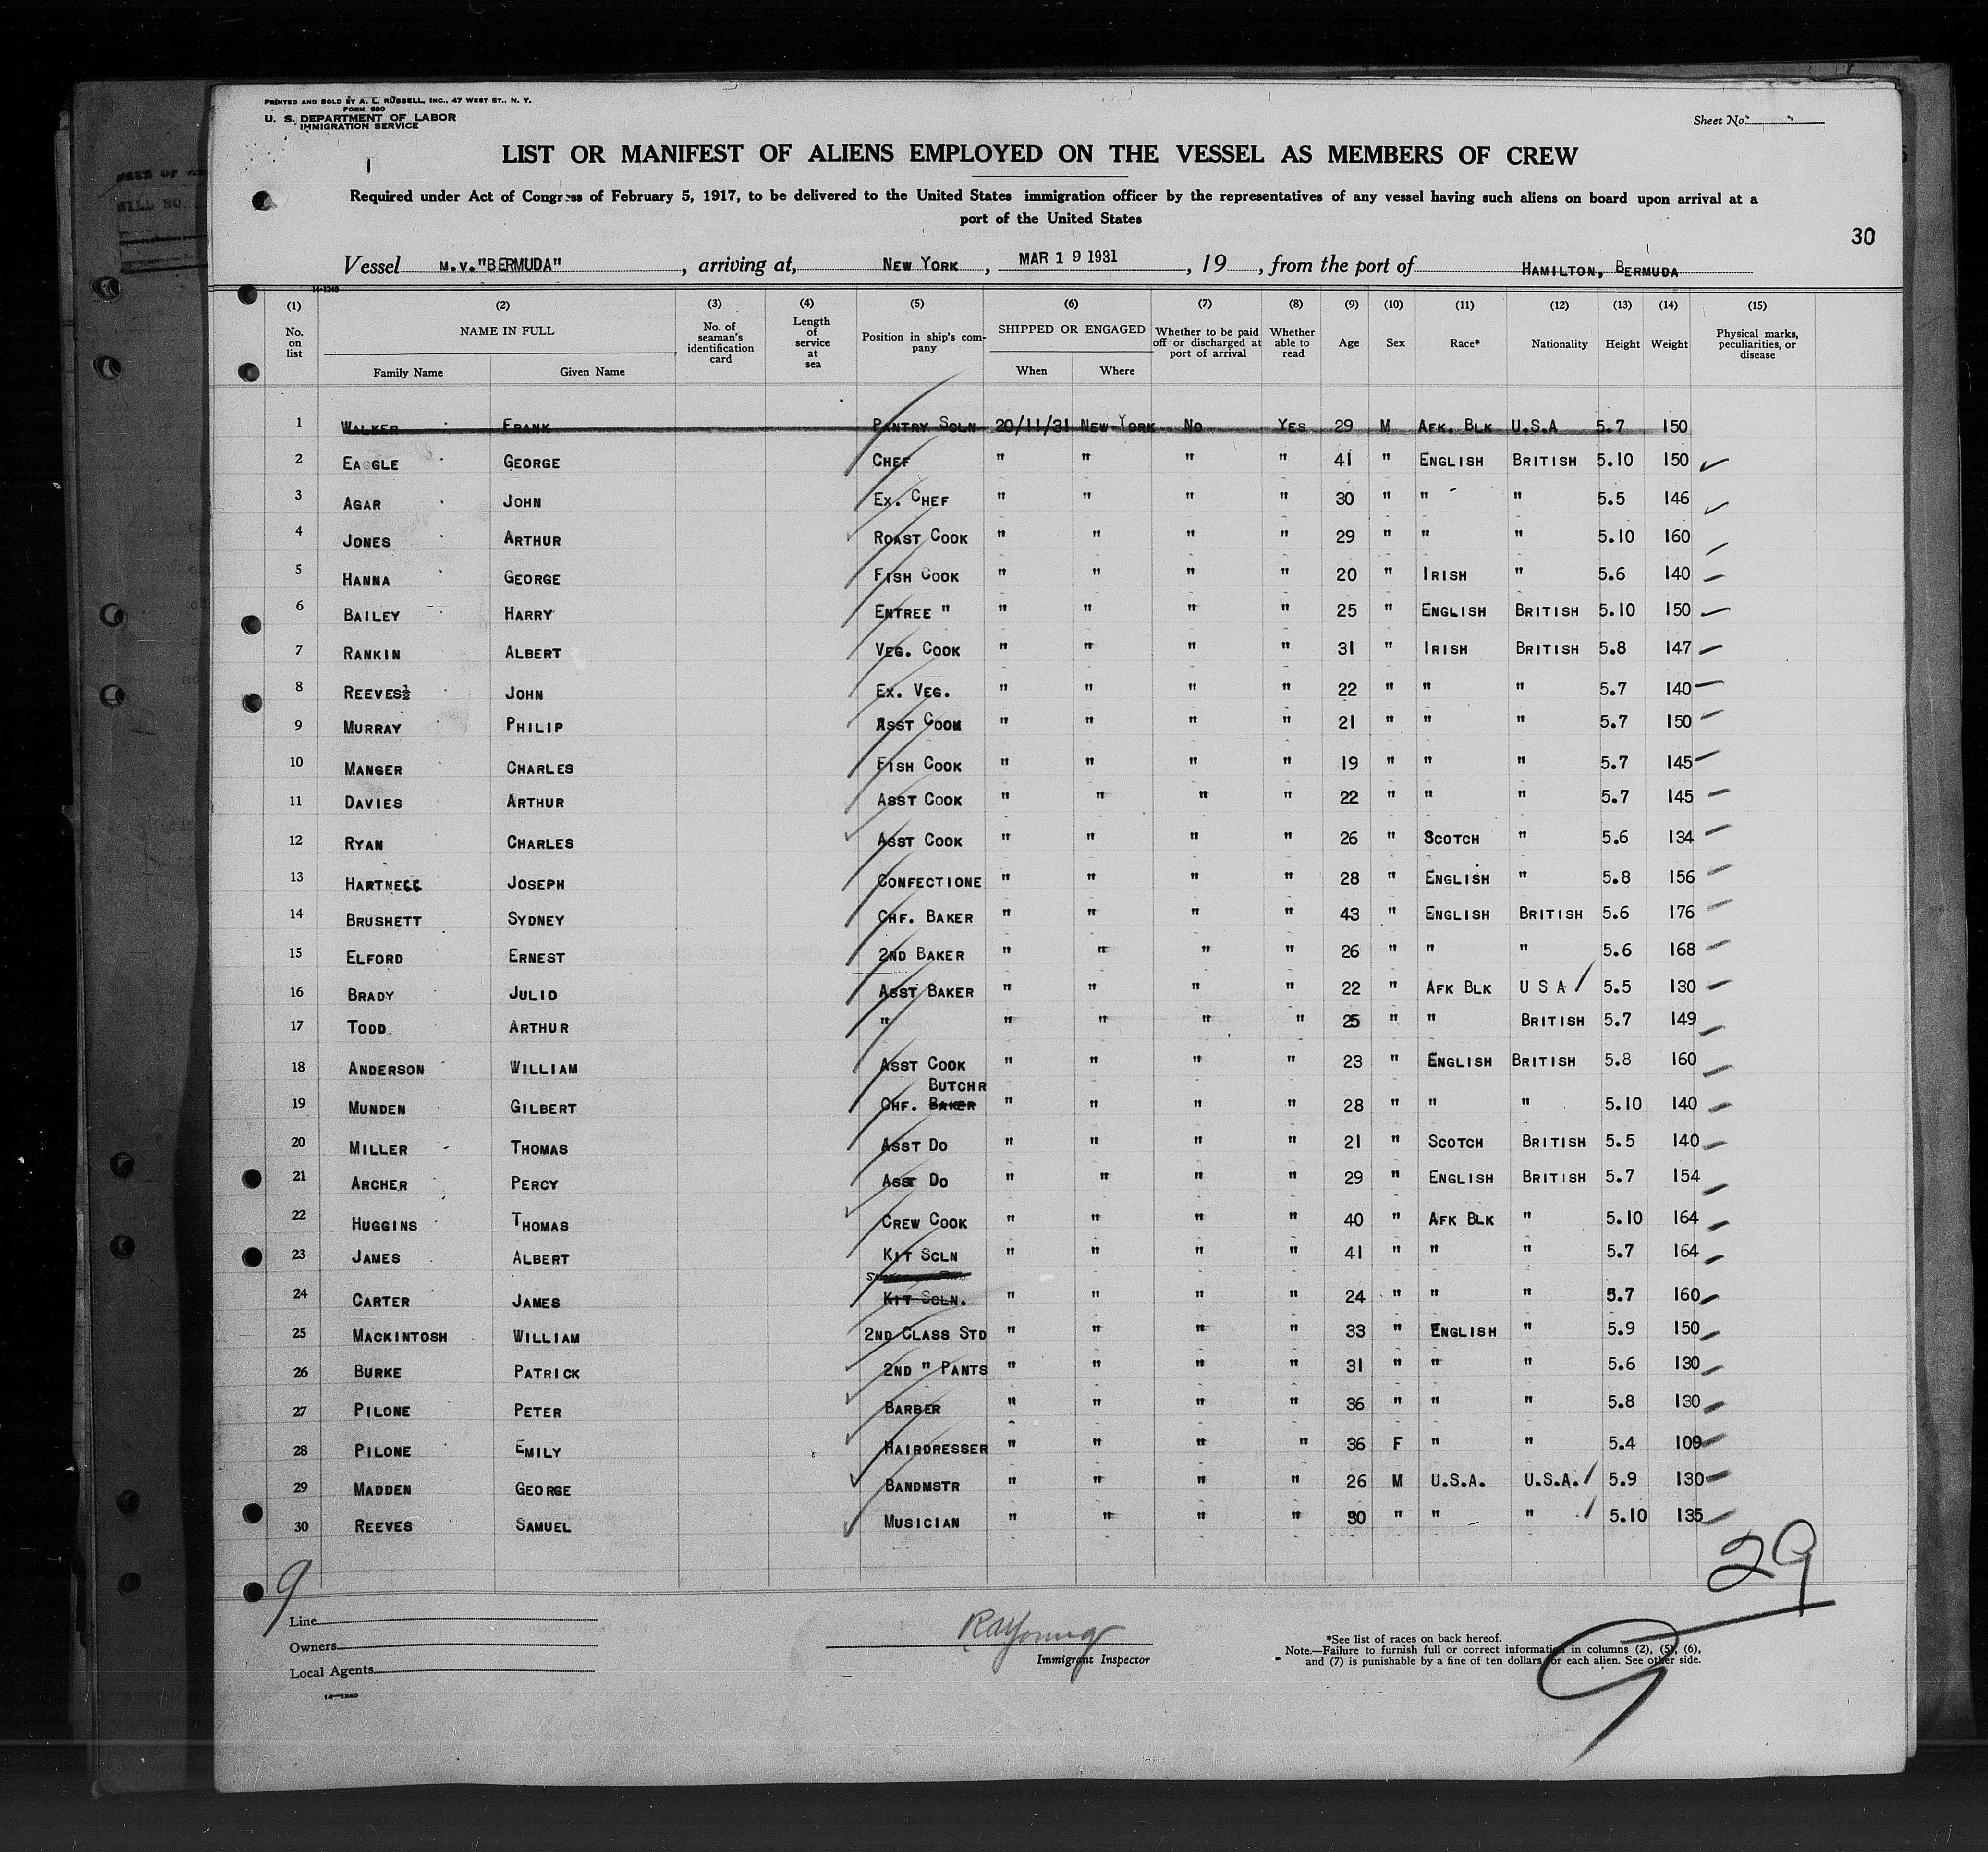 PRINTED AND SOLD BY A. L. RUSSELL, INC., 47 WEST ST., N. Y.
FORM 680
U. S. DEPARTMENT OF LABOR
IMMIGRATION SERVICE
Sheet No.
LIST OR MANIFEST OF ALIENS EMPLOYED ON THE VESSEL AS MEMBERS OF CREW
Required under Act of Congress of February 5, 1917, to be delivered to the United States immigration officer by the representatives of any vessel having such aliens on board upon arrival at a
port of the United States
30
Vessel M.V."BERMUDA", arriving at, NEW YORK, MAR 19 1931, 19, from the port of HAMILTON, BERMUDA
14-1240
(1) (2) (3) (4) (5) (6) (7) (8) (9) (10) (11) (12) (13) (14) (15)
No. on list NAME IN FULL Family Name Given Name No. of seaman's identification card Length of service at sea Position in ship's company SHIPPED OR ENGAGED When Where Whether to be paid off or discharged at port of arrival Whether able to read Age Sex Race* Nationality Height Weight Physical marks, peculiarities, or disease
1 WALKER FRANK PANTRY SCLN 20/11/31 NEW YORK NO YES 29 M AFK. BLK U.S.A 5.7 150
2 EAGLE GEORGE CHEF " " " " 41 " ENGLISH BRITISH 5.10 150
3 AGAR JOHN EX. CHEF " " " " 30 " " " 5.5 146
4 JONES ARTHUR ROAST COOK " " " " 29 " " " 5.10 160
5 HANNA GEORGE FISH COOK " " " " 20 " IRISH " 5.6 140
6 BAILEY HARRY ENTREE " " " " " 25 " ENGLISH BRITISH 5.10 150
7 RANKIN ALBERT VEG. COOK " " " " 31 " IRISH BRITISH 5.8 147
8 REEVES½ JOHN EX. VEG. " " " " 22 " " " 5.7 140
9 MURRAY PHILIP ASST COOK " " " " 21 " " " 5.7 150
10 MANGER CHARLES FISH COOK " " " " 19 " " " 5.7 145
11 DAVIES ARTHUR ASST COOK " " " " 22 " " " 5.7 145
12 RYAN CHARLES ASST COOK " " " " 26 " SCOTCH " 5.6 134
13 HARTNELL JOSEPH CONFECTIONE " " " " 28 " ENGLISH " 5.8 156
14 BRUSHETT SYDNEY CHF. BAKER " " " " 43 " ENGLISH BRITISH 5.6 176
15 ELFORD ERNEST 2ND BAKER " " " " 26 " " " 5.6 168
16 BRADY JULIO ASST BAKER " " " " 22 " AFK BLK U S A 5.5 130
17 TODD ARTHUR " " " " " 25 " " BRITISH 5.7 149
18 ANDERSON WILLIAM ASST COOK " " " " 23 " ENGLISH BRITISH 5.8 160
BUTCHR
19 MUNDEN GILBERT CHF. BAKER " " " " 28 " " " 5.10 140
20 MILLER THOMAS ASST DO " " " " 21 " SCOTCH BRITISH 5.5 140
21 ARCHER PERCY ASST DO " " " " 29 " ENGLISH BRITISH 5.7 154
22 HUGGINS THOMAS CREW COOK " " " " 40 " AFK BLK " 5.10 164
23 JAMES ALBERT KIT SCLN " " " " 41 " " " 5.7 164
24 CARTER JAMES KIT SCLN. " " " " 24 " " " 5.7 160
25 MACKINTOSH WILLIAM 2ND CLASS STD " " " " 33 " ENGLISH " 5.9 150
26 BURKE PATRICK 2ND " PANTS " " " " 31 " " " 5.6 130
27 PILONE PETER BARBER " " " " 36 " " " 5.8 130
28 PILONE EMILY HAIRDRESSER " " " " 36 F " " 5.4 109
29 MADDEN GEORGE BANDMSTR " " " " 26 M U.S.A. U.S.A. 5.9 130
30 REEVES SAMUEL MUSICIAN " " " " 30 " " " 5.10 135
29
9
Line
Owners
Local Agents
14-1240
RAYoung
Immigrant Inspector
*See list of races on back hereof.
Note.—Failure to furnish full or correct information in columns (2), (5), (6),
and (7) is punishable by a fine of ten dollars for each alien. See other side.